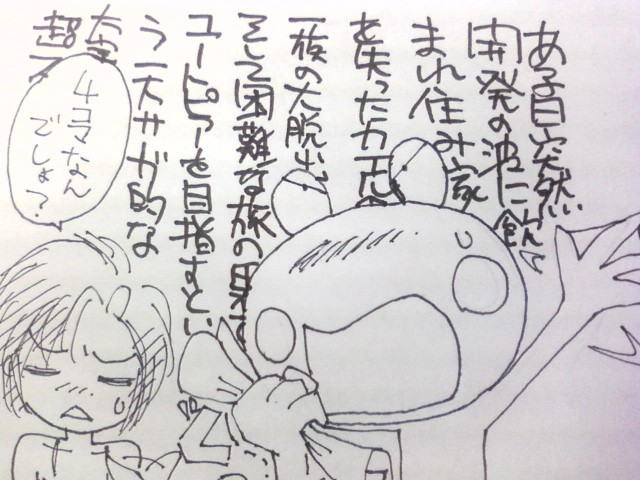 ある日突然
開発の波に飲
まれ住み家
を失ったカエル
一族の大脱出
そして困難な旅の果て
ユートピアを目指すとい
う一大サガ的な
超
4コマなん
でしょ?